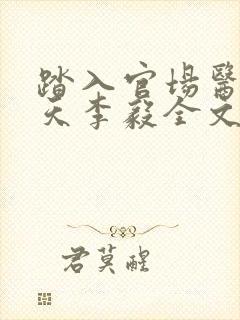 踏入官場醫
天李毅全文
君莫醒